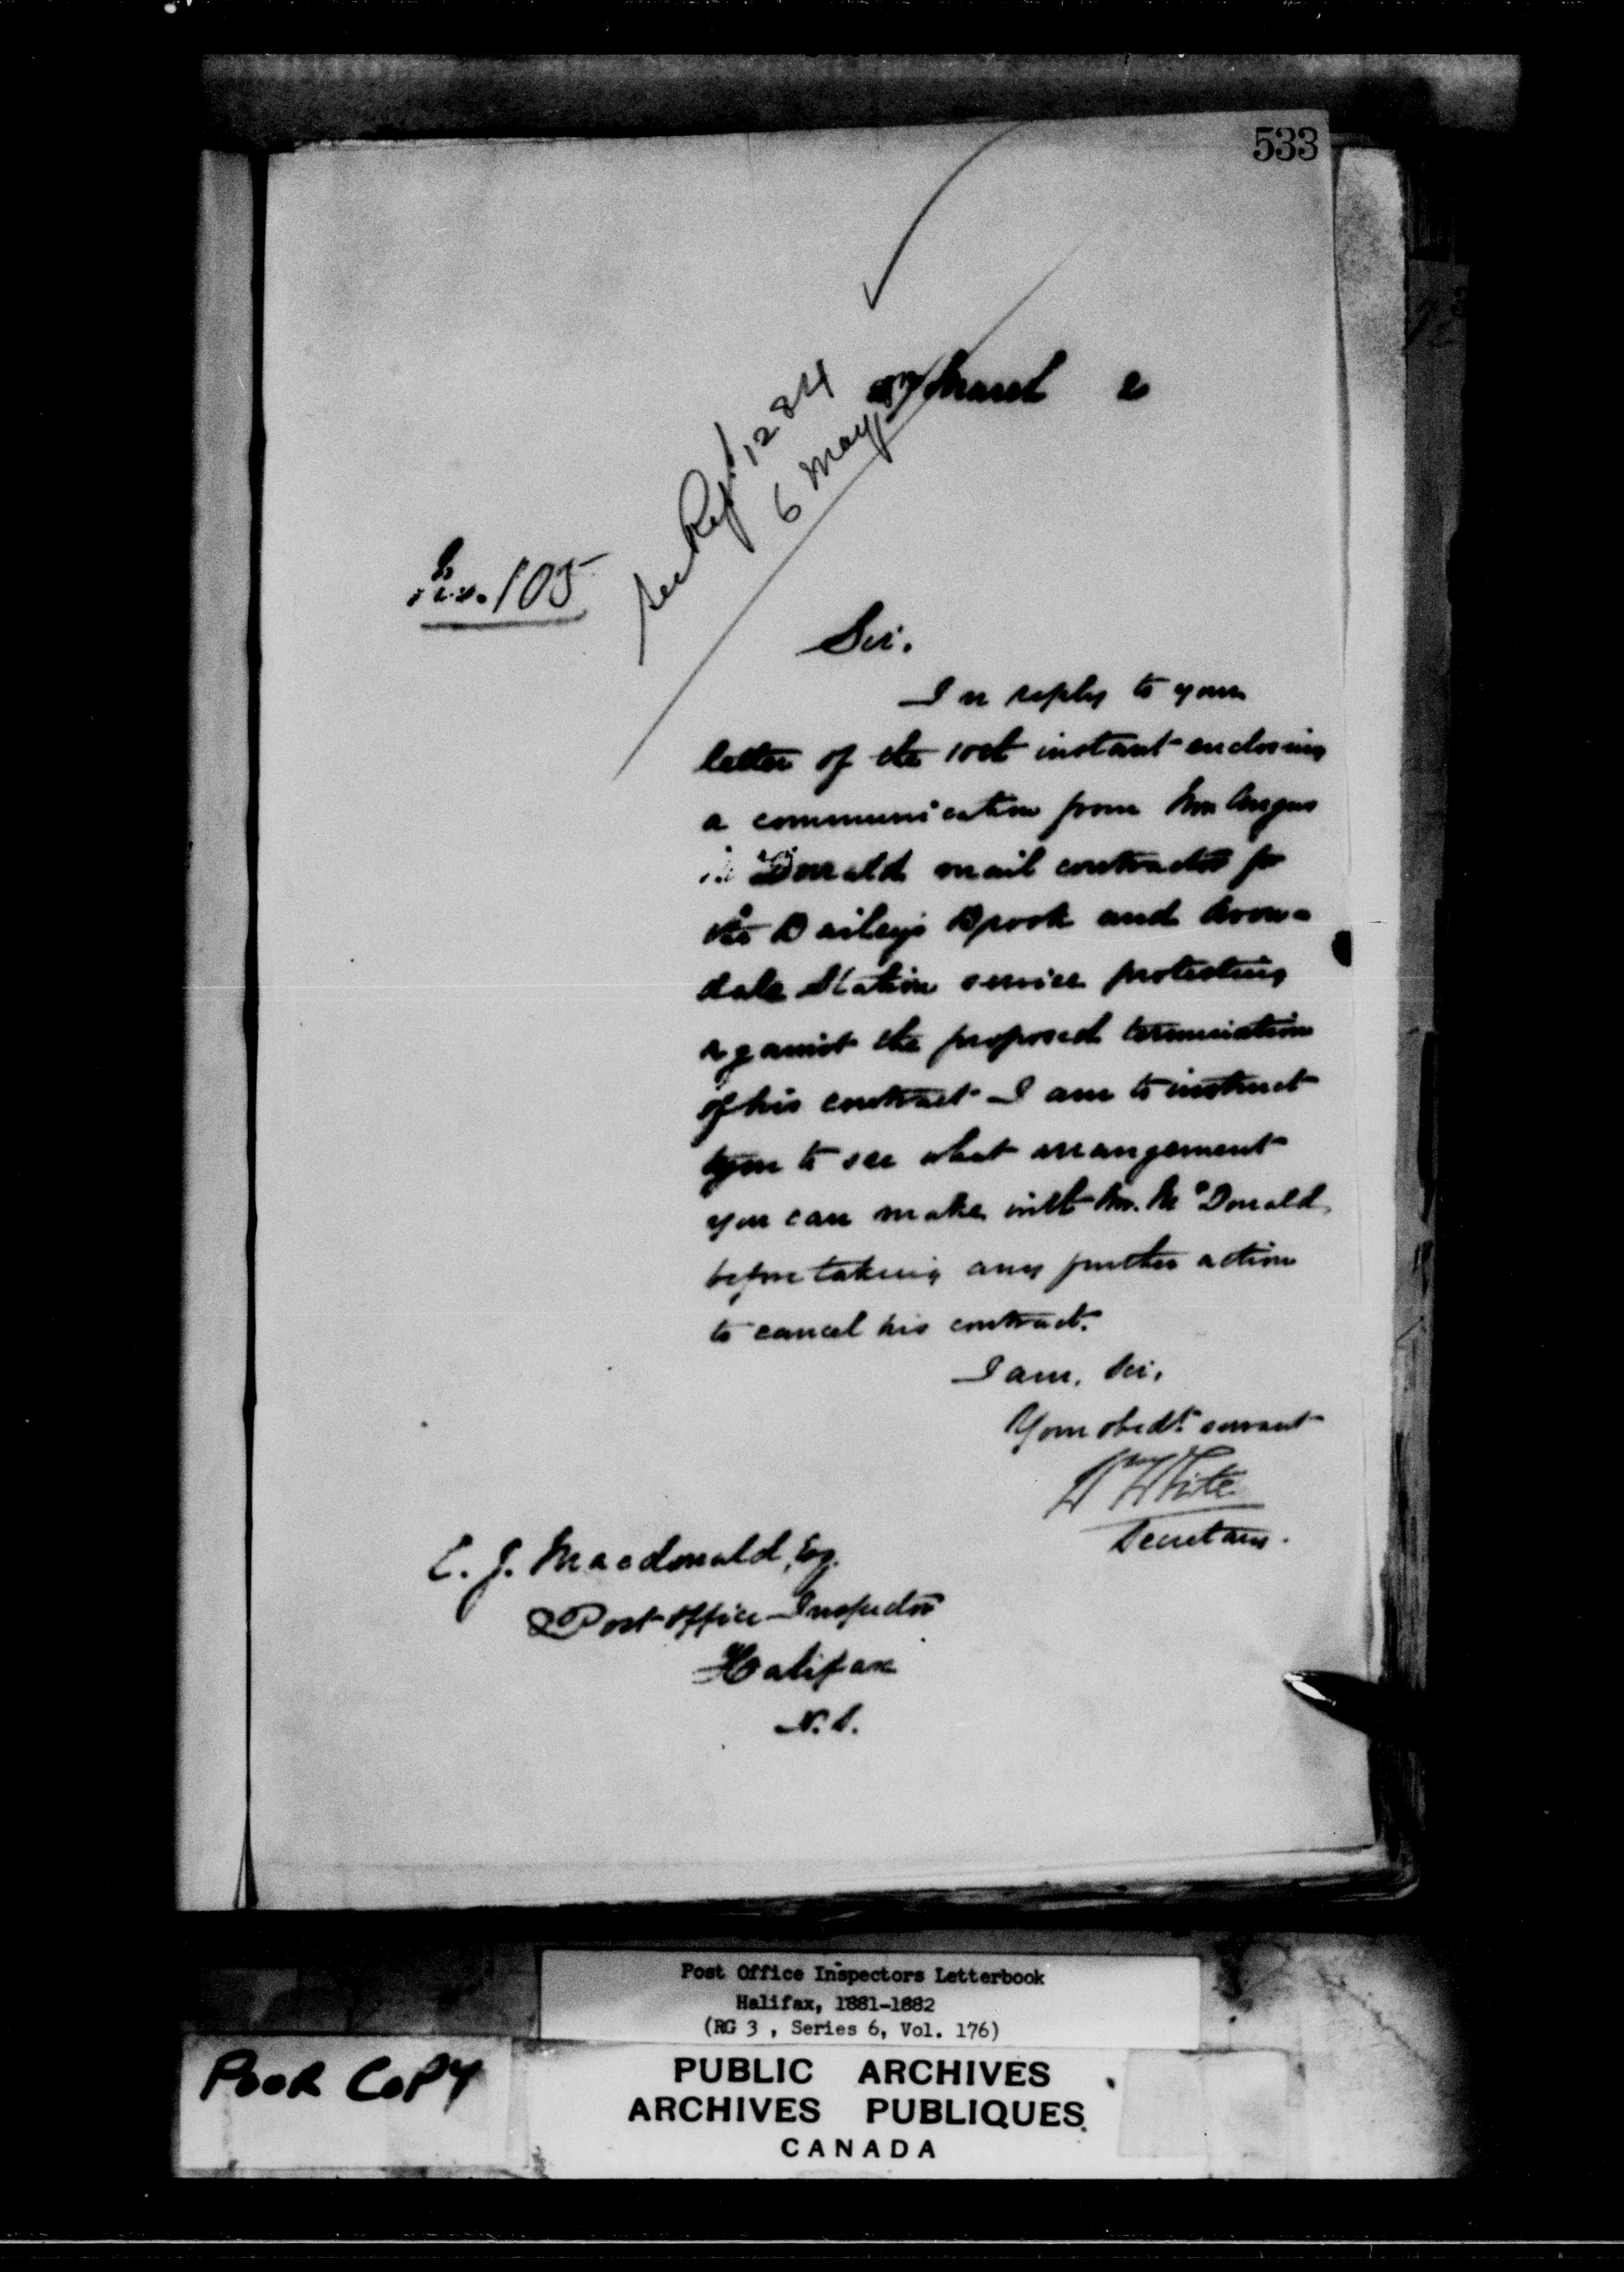 533
March 2
See Rept 1284
6 May
No. 105
Sir.
In reply to your
letter of the 10th instant enclosing
a communication from Mr. Angus
McDonald mail contractor for
the Baileys Brook and Avon-
dale Station service protesting
against the proposed termination
of his contract I am to instruct
you to see what arrangement
you can make with Mr. McDonald
before taking any further action
to cancel his contract.
I am, Sir,
Your obedt. servant
Wm White
Secretary.
C. J. Macdonald, Esq.
Post Office Inspector
Halifax
N.S.
Post Office Inspectors Letterbook
Halifax, 1881-1882
(RG 3 , Series 6, Vol. 176)
POOR COPY
PUBLIC ARCHIVES
ARCHIVES PUBLIQUES
CANADA